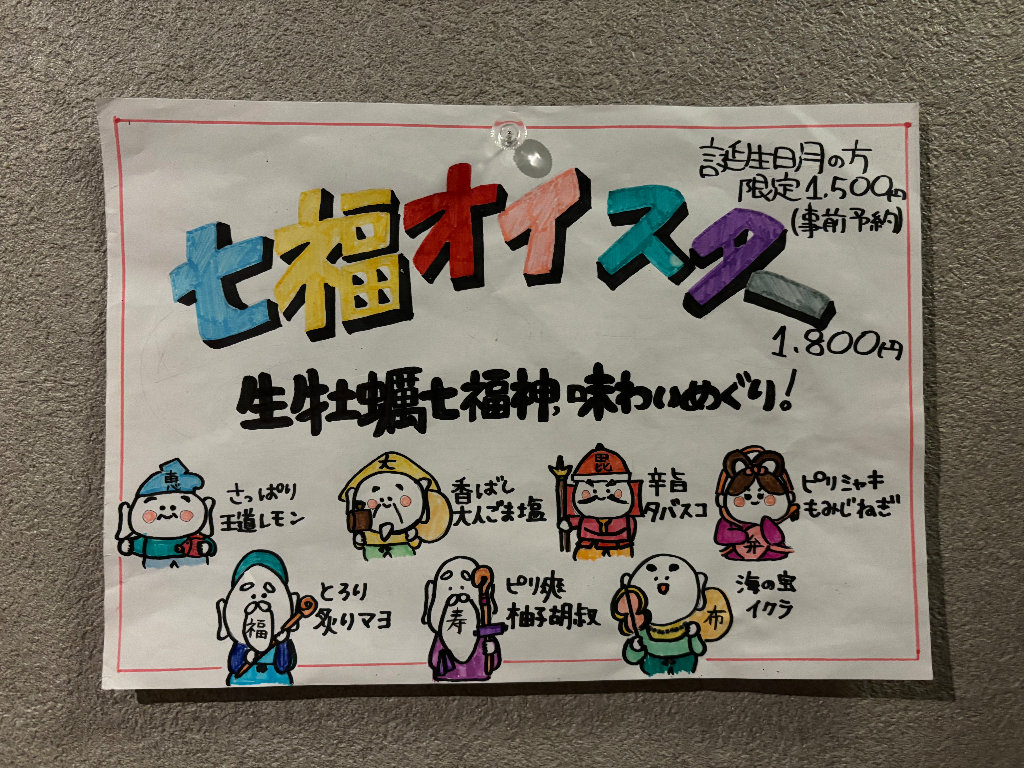 誕生日月の方
限定1.500円
(事前予約)
七福オイスター
1.800円
生牡蠣七福神、味わいめぐり!
恵
さっぱり
王道レモン
大
香ばし
大人ごま塩
毘
辛旨
タバスコ
弁
ピリシャキ
もみじねぎ
福
とろり
炙りマヨ
寿
ピリ爽
柚子胡叔
布
海の宝
イクラ